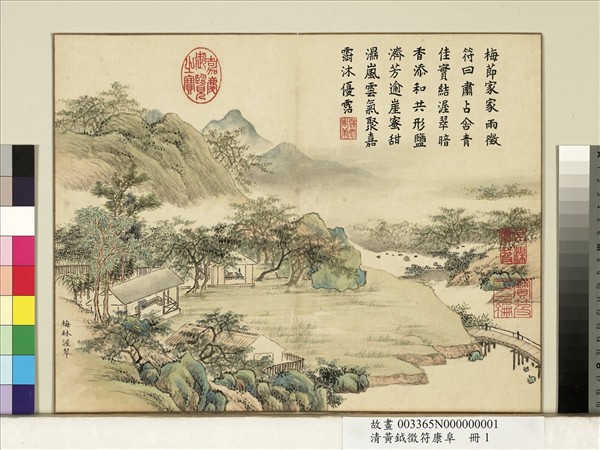 梅節家家雨徵
符曰肅占含青
佳實結渥翠暗
香添和共形鹽
濟芳逾崖蜜甜
濕嵐雲氣聚嘉
霱沐優霑
嘉慶御覽之寶
梅林渥翠
故畫 003365N000000001
清黃鉞徵符康阜 冊 1